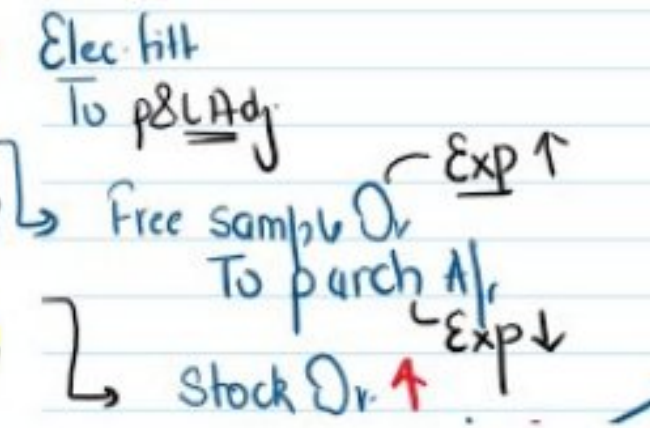 Elec. fitt
To P&L Adj.
Exp ↑
Free sample Dr
To purch A/c
Exp ↓
Stock Dr. ↑